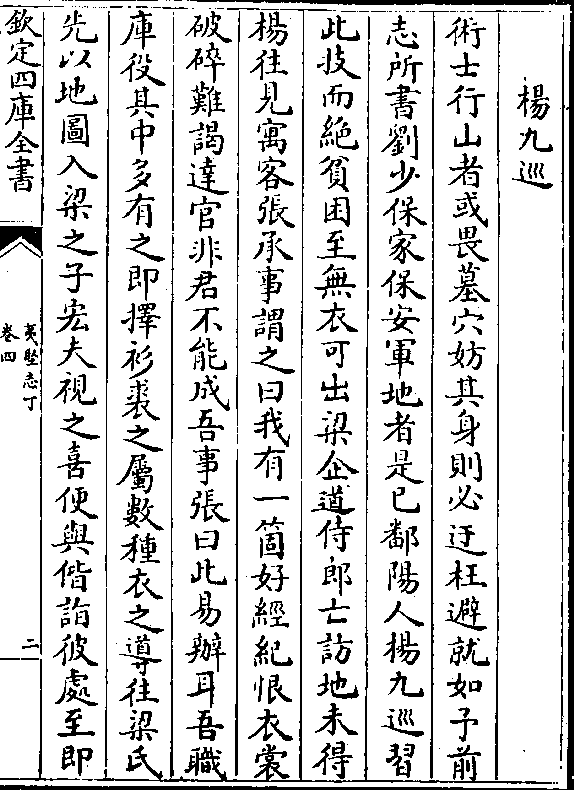 楊九巡
術士行山者或畏墓穴妨其身則必迂枉避就如予前
志所書劉少保家保安軍地者是已鄱陽人楊九巡習
此技而絶貧困至無衣可出梁企道侍郎亡訪地未得
楊往見寓客張承事謂之曰我有一箇好經紀恨衣裳
破碎難謁達官非君不能成吾事張曰此易辦耳吾職
庫役其中多有之即擇衫裘之屬數種衣之導往梁氏
先以地圖入梁之子宏夫視之喜便與偕詣彼處至即
欽定四庫全書
夷堅志丁
卷四
二